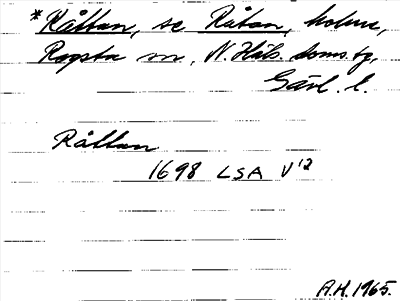 *Råttan, se Råtan, holme,
Rogsta sn, N. Häls. doms. tg,
Gävl. l.
Råttan
1698 LSA V12
A.H. 1965.